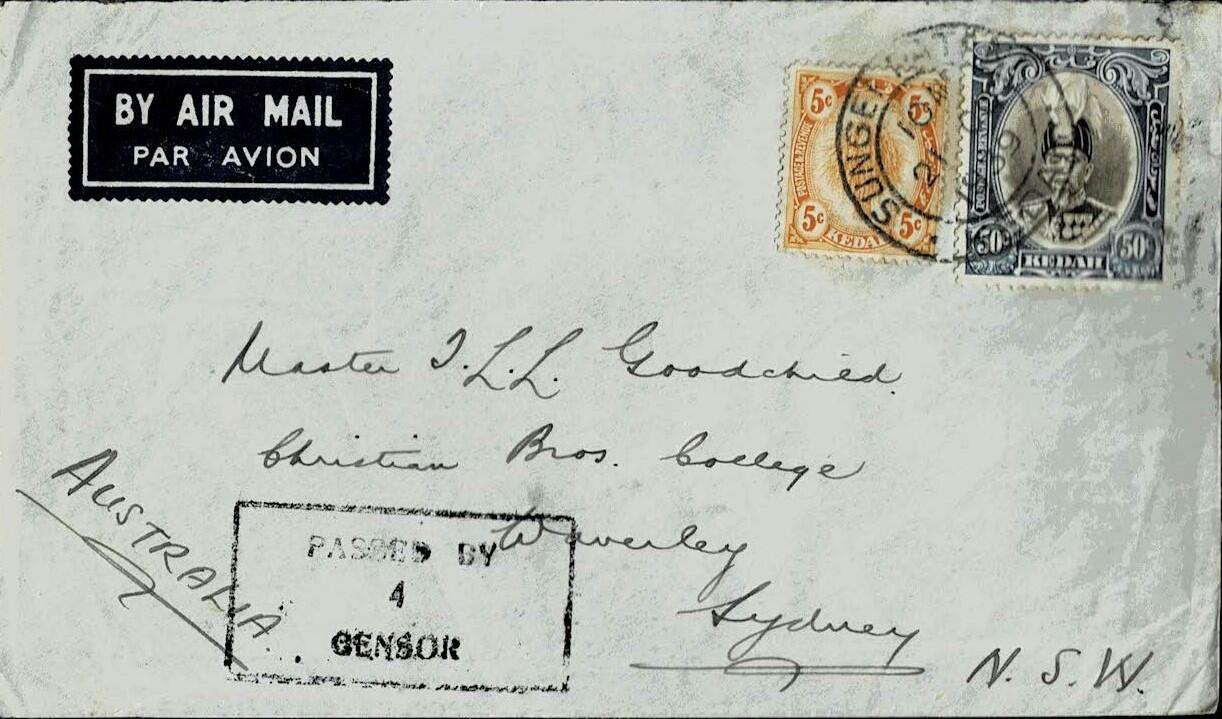 BY AIR MAIL
PAR AVION
5c 5c
POSTAGE & REVENUE
5c 5c
KEDAH
SUNGEI
50c 50c
KEDAH
Master I.L.L. Goodchild.
Christian Bros. College
Waverley
Sydney
N. S. W.
AUSTRALIA
PASSED BY
4
CENSOR